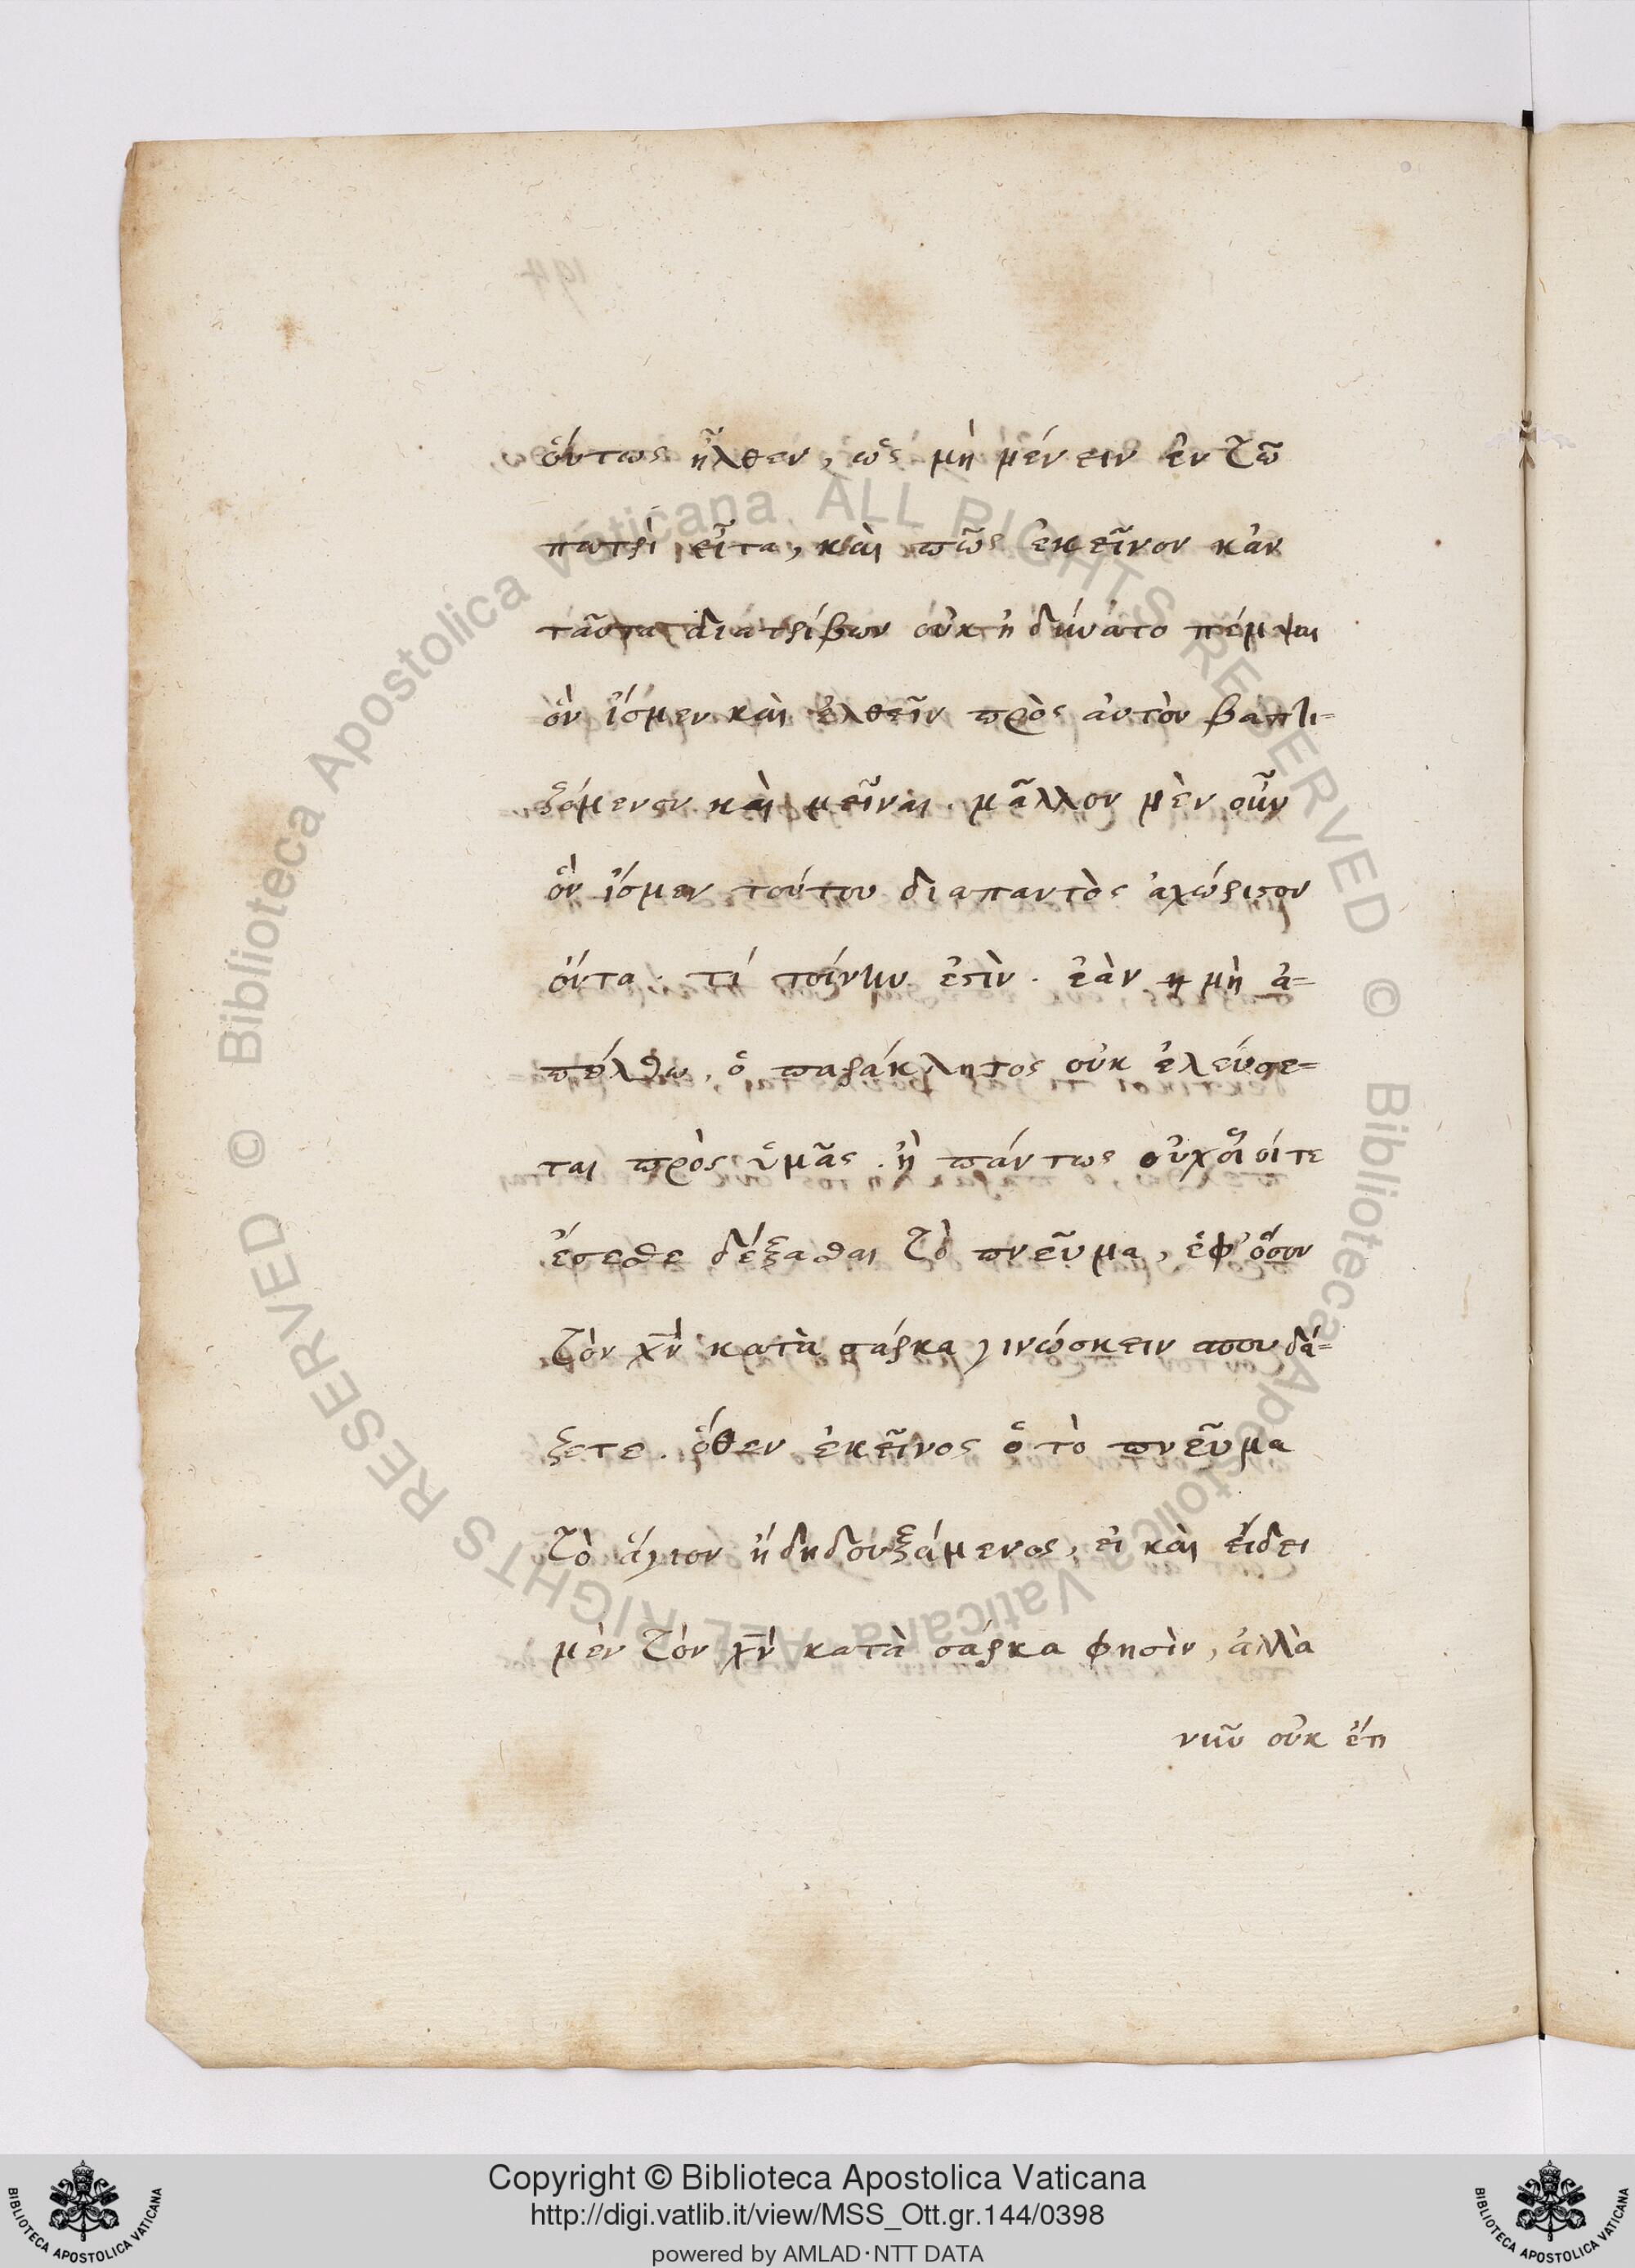 όύτως ἦλθεν, ὡς μὴ μένειν ἐν τῶ
πατρὶ εἶτα, καὶ πῶς ἐκεῖνον κἀν
ταῦτα διατρίβων οὐκ ἠδύνατο πέμψαι
ὃν ἴσμεν καὶ ἐλθεῖν πρὸς ἀυτὸν βαπτι=
ζόμενον καὶ μεῖναι. μᾶλλον μὲν οὖν
ὃν ἴσμεν τούτου διαπαντὸς ἀχώριστον
όντα. τί τοίνυν ἐστὶν. ἐὰν μὴ ἀ=
πέλθω, ὁ παράκλητος οὐκ ἐλεύσε=
ται πρὸς ὑμᾶς. ἢ πάντως οὐχ οἷοί τε
ἔσεσθε δέξασθαι τὸ πνεῦμα, ἐφ' ὅσον
τὸν χν̅ κατὰ σάρκα γινώσκειν σπουδά=
ζετε. ὅθεν ἐκεῖνος ὁ τὸ πνεῦμα
τὸ ἅγιον ἤδη δουξάμενος, εἰ καὶ εἴδει
μὲν τὸν χν̅ κατὰ σάρκα φησὶν, ἀλλὰ
νῦν οὐκ ἔτι
Copyright © Biblioteca Apostolica Vaticana
http://digi.vatlib.it/view/MSS_Ott.gr.144/0398
powered by AMLAD·NTT DATA
BIBLIOTECA APOSTOLICA VATICANA
BIBLIOTECA APOSTOLICA VATICANA
© Biblioteca Apostolica Vaticana. ALL RIGHTS RESERVED
© Biblioteca Apostolica Vaticana. ALL RIGHTS RESERVED